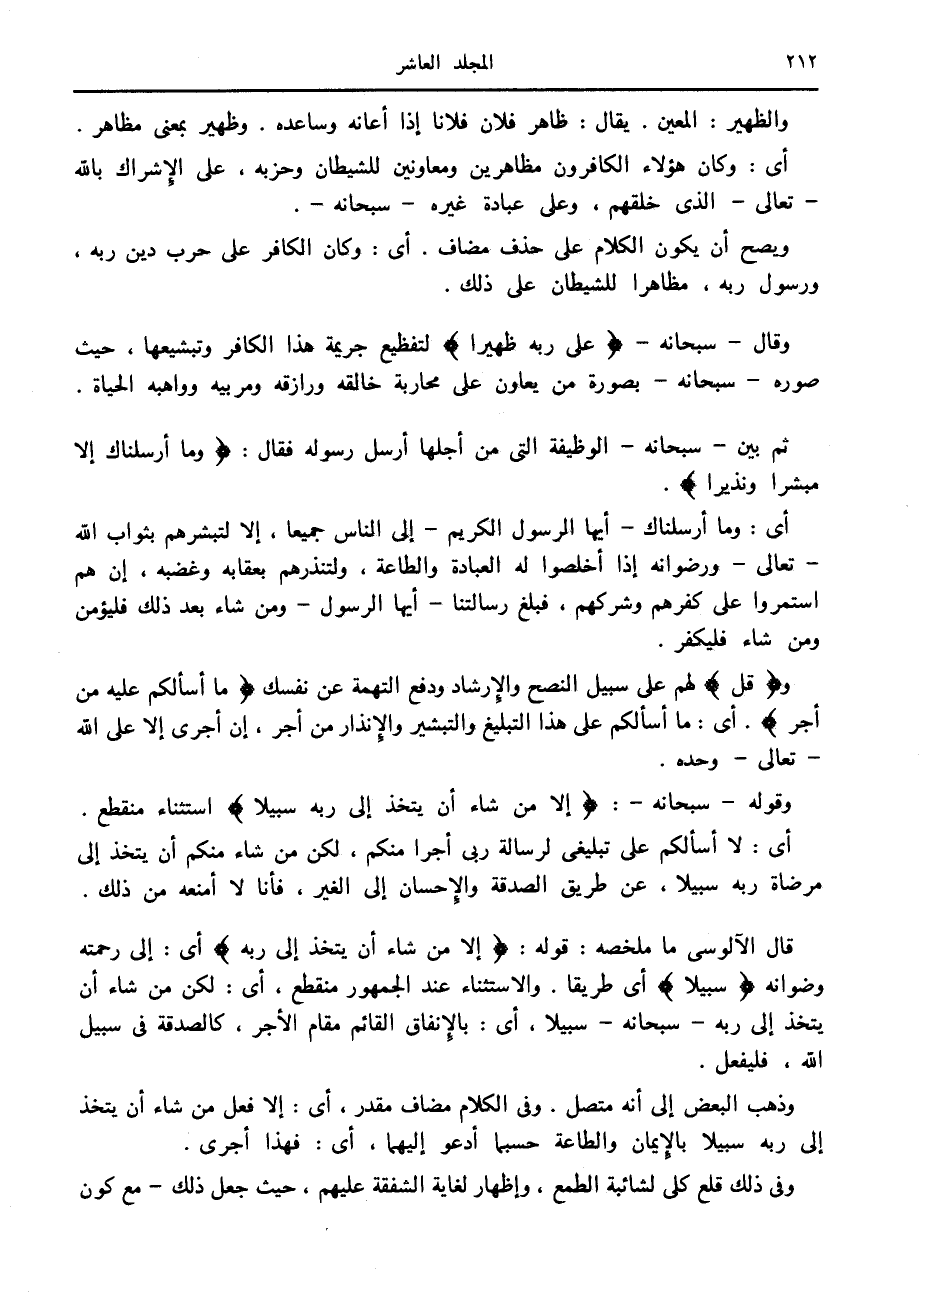 ٢١٢
المجلد العاشر
والظهير : المعين . يقال : ظاهر فلان فلانا إذا أعانه وساعده . وظهير بمعنى مظاهر .
أى : وكان هؤلاء الكافرون مظاهرين ومعاونين للشيطان وحزبه ، على الإشراك بالله
– تعالى – الذى خلقهم ، وعلى عبادة غيره – سبحانه – .
ويصح أن يكون الكلام على حذف مضاف . أى : وكان الكافر على حرب دين ربه ،
ورسول ربه ، مظاهرا للشيطان على ذلك .
وقال – سبحانه – ﴿ على ربه ظهيرا ﴾ لتفظيع جريمة هذا الكافر وتبشيعها ، حيث
صوره – سبحانه – بصورة من يعاون على محاربة خالقه ورازقه ومربيه وواهبه الحياة .
ثم بين – سبحانه – الوظيفة التى من أجلها أرسل رسوله فقال : ﴿ وما أرسلناك إلا
مبشرا ونذيرا ﴾ .
أى : وما أرسلناك – أيها الرسول الكريم – إلى الناس جميعا ، إلا لتبشرهم بثواب الله
– تعالى – ورضوانه إذا أخلصوا له العبادة والطاعة ، ولتنذرهم بعقابه وغضبه ، إن هم
استمروا على كفرهم وشركهم ، فبلغ رسالتنا – أيها الرسول – ومن شاء بعد ذلك فليؤمن
ومن شاء فليكفر .
و﴿ قل ﴾ لهم على سبيل النصح والإرشاد ودفع التهمة عن نفسك ﴿ ما أسألكم عليه من
أجر ﴾ . أى : ما أسألكم على هذا التبليغ والتبشير والإنذار من أجر ، إن أجرى إلا على الله
– تعالى – وحده .
وقوله – سبحانه – : ﴿ إلا من شاء أن يتخذ إلى ربه سبيلا ﴾ استثناء منقطع .
أى : لا أسألكم على تبليغى لرسالة ربى أجرا منكم ، لكن من شاء منكم أن يتخذ إلى
مرضاة ربه سبيلا ، عن طريق الصدقة والإحسان إلى الغير ، فأنا لا أمنعه من ذلك .
قال الآلوسى ما ملخصه : قوله : ﴿ إلا من شاء أن يتخذ إلى ربه ﴾ أى : إلى رحمته
وضوانه ﴿ سبيلا ﴾ أى طريقا . والاستثناء عند الجمهور منقطع ، أى : لكن من شاء أن
يتخذ إلى ربه – سبحانه – سبيلا ، أى : بالإنفاق القائم مقام الأجر ، كالصدقة فى سبيل
الله ، فليفعل .
وذهب البعض إلى أنه متصل . وفى الكلام مضاف مقدر ، أى : إلا فعل من شاء أن يتخذ
إلى ربه سبيلا بالإيمان والطاعة حسبما أدعو إليهما ، أى : فهذا أجرى .
وفى ذلك قلع كلى لشائبة الطمع ، وإظهار لغاية الشفقة عليهم ، حيث جعل ذلك – مع كون